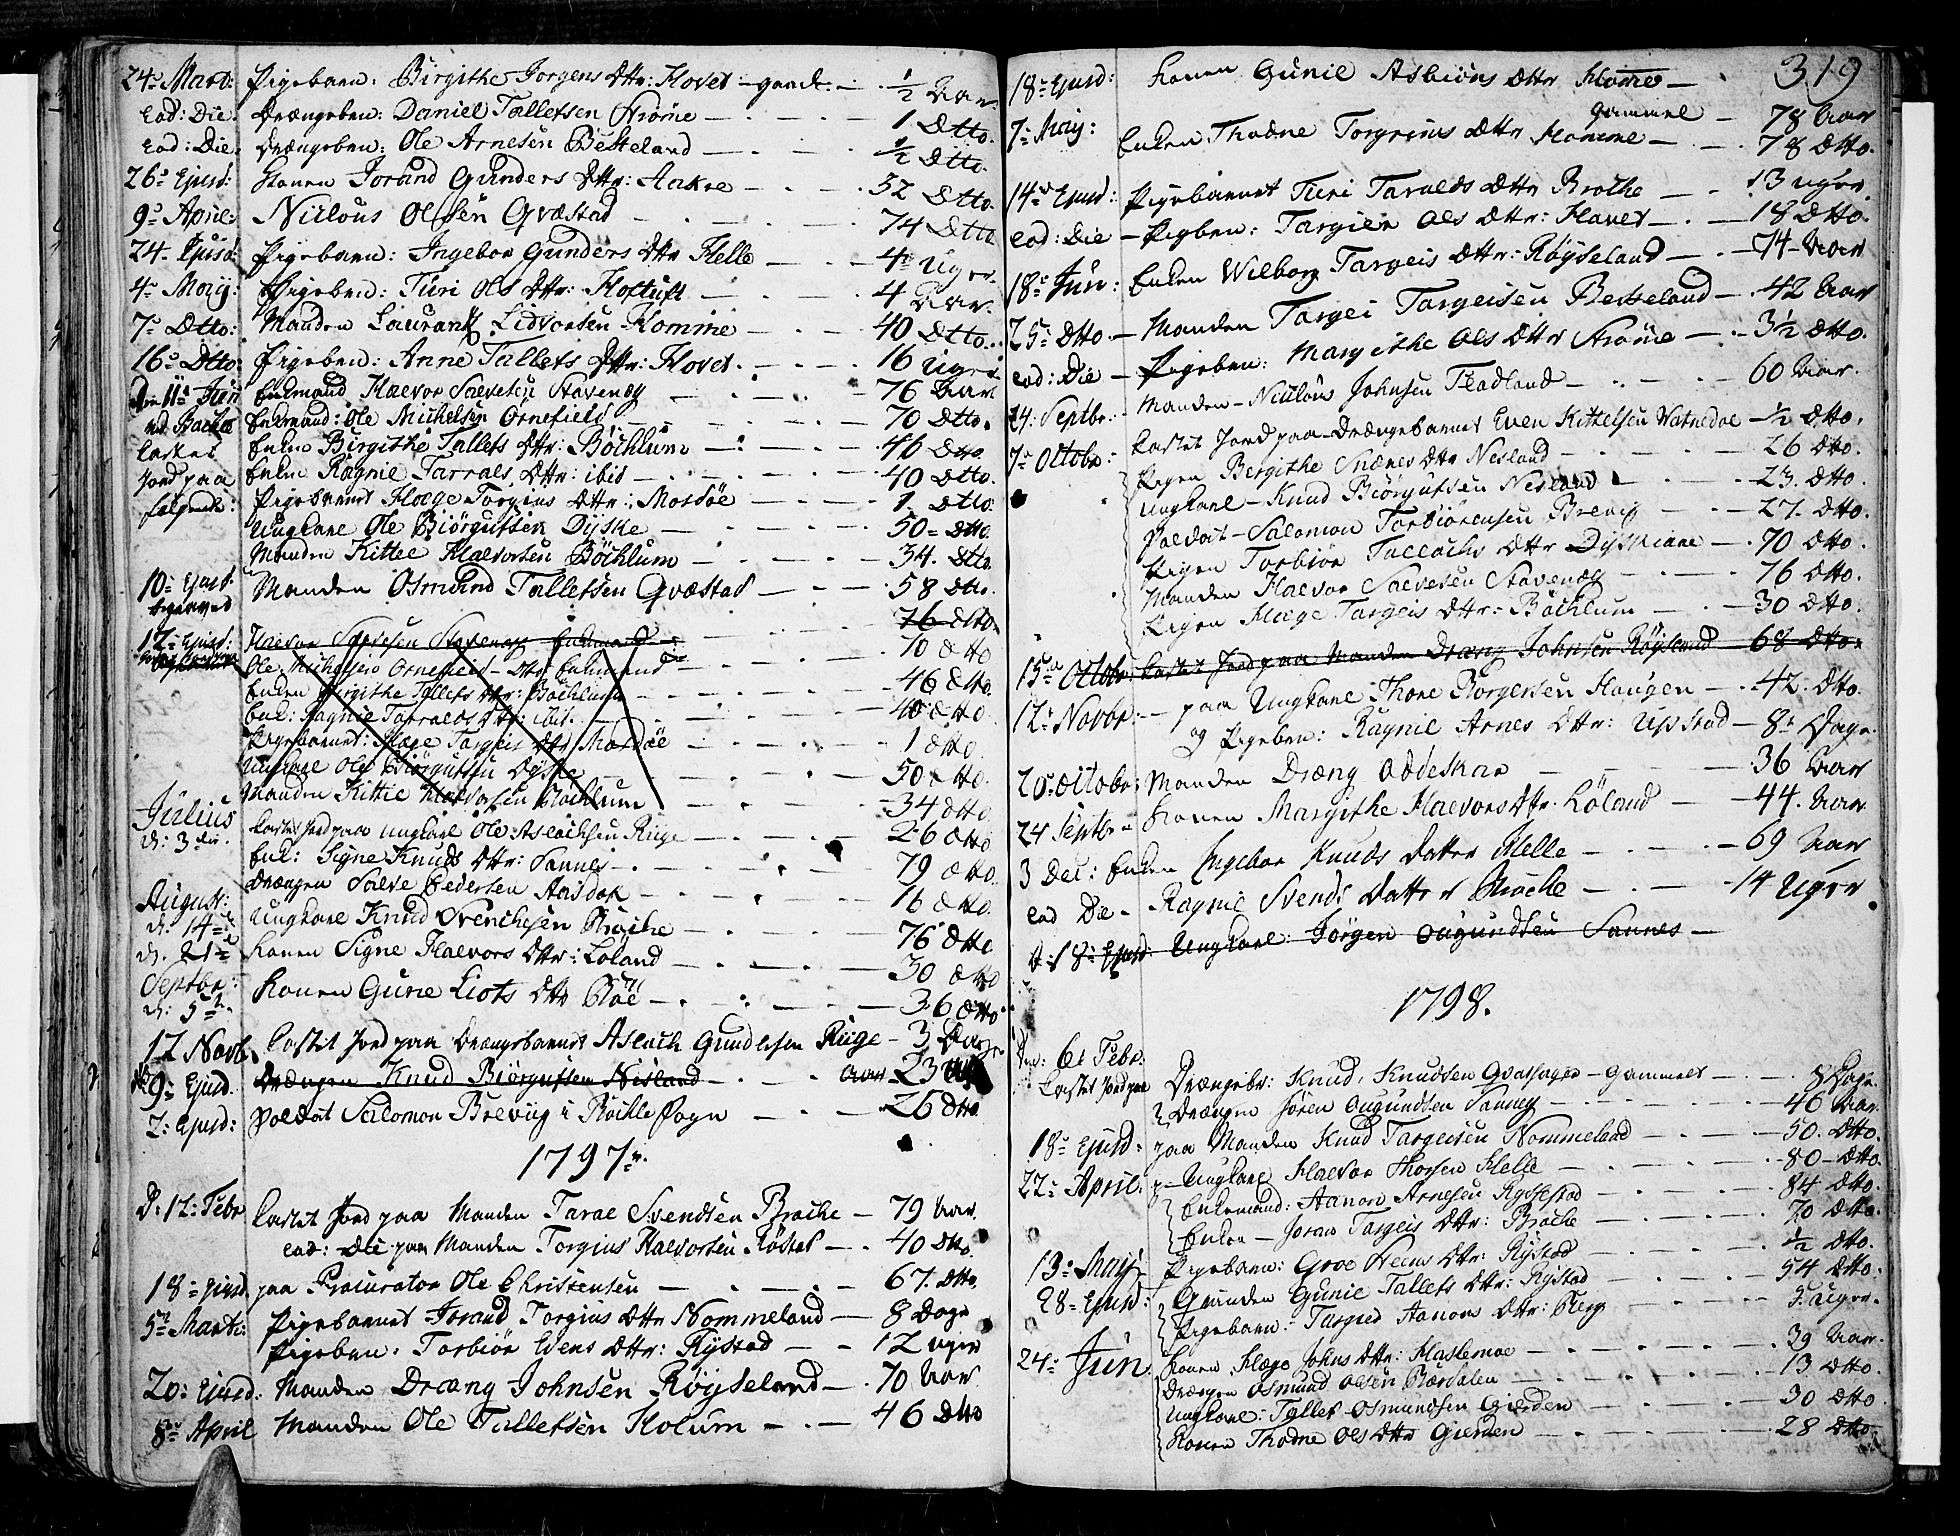 24 Mart: Pigebarn: Birgithe Jorgens Dttr: Hovet - gaml: - 1/2 Aar
Eod: Die: Drængebn: Daniel Talletsen Strøme - 1 Dtto
Eod: Die: Drængebn: Ole Arnesen Besteland - 1/2 Dtto
26 Ejusd: Konen Jorand Gunders Dttr: Aakre - 32 Dtto
9 April: Niclous Olsen Qvæstad - 74 Dtto
24 Ejusd: Pigebarn: Ingebor Gunders Dttr Helle - 4 Uger
4 Maij: Pigebn: Turi Ols Dttr: Hoftuft - 4 Aar
7 Dtto: Manden Laurantz Lidvorsen Homme - 40 Dtto
16 Dtto: Pigebn: Anne Tallets Dttr: Hovet - 16 Uger
Den 11 Jun Enkmand Haevor Saevesen Stavenæg - 76 Aar
ved Bøcke Enkmand: Ole Michelsen Ornefield - 70 Dtto
kastet Enken Birgithe Tallets Dttr: Böchlum - 46 Dtto
Jord paa Enken Ragnie Tarrals Dttr: ibid - 40 Dtto
følgende: Pigebarnet Hæge Torgius Dttr: Mosdöe - 1 Dtto
Ungkarl Ole Biörgufsen Dÿske - 50 Dtto
Manden Kittel Haevorsen Böchlum - 34 Dtto
10 Ejusd: Manden Osmund Talletsen Qvæstad - 58 Dtto
begravet
12 Ejusd: Haevor Saevesen Stavenæg Enkmand - 76 Dtto
Ole Michelsen Ornefield - Dtto Enkmand - 70 Dtto
Enken Birgithe Tallets Dttr: Böchlum - 46 Dtto
Enk: Ragnie Tarralds Dttr: ibid - 40 Dtto
Pigebarnet: Hæge Targeis Dttr Mosdöe - 1 Dtto
Ungkarl Ole Biörgufsen Dÿske - 50 Dtto
Manden Kittil Haevorsen Böchlum - 34 Dtto
Julius
d: 3die kastet Jord paa Ungkarl Ole Aslachsen Rüge - 26 Dtto
Enk: Signe Knuds Dttr: Sannes - 79 Dtto
Drængen Saeve Pedersen Aasdok - 16 Dtto
August:
d: 14 Ungkarl Knud Svenchesen Brøche - 76 Dtto
d: 21 Konen Signe Haevors Dttr: Loland - 30 Dtto
Septbr:
d: 5 Konen Gunie Liots Dttr Böe - 36 Dtto
12 Novb. kastet Jord paa Drængebarnet Aslach Gundersen Rüge - 3 Dage
9 Ejusd. Drængen Knud Biörgufsen Nisland - Aar 23
7 Ejusd: Soldat Salomon Brevig i Bÿkle Sogn - 26 Dtto
1797
D: 12 Febr kastet Jord paa Manden Tarae Svendsen Broche - 79 Aar
eod: Die paa Manden Torgius Haevorsen Röstad - 40 Dtto
18 Ejusd paa Procurator Ole Christensen - 67 Dtto
5 Mart: Pigebarnet Jorand Torgius Dttr Nommeland - 8 Dage
Pigebn: Torbiör Evens Dttr: Rÿstad - 12 Uger
20 Ejusd: Manden Dræng Johnsen Röÿseland - 70 Aar
8 April Manden Ole Talletsen Holum - 46 Dtto
319
18 Ejusd: Konen Gunil Asbiöns Dttr Homme -
gammel - 78 Aar
7 Maij: Enken Thodne Torgrims Dttr Homme - 78 Dtto
14 Ejusd: Pigebarnet Turi Taralds Dttr Broche - 13 Uger
eod: Die - Pigbn: Targier Ols Dttr: Hovet - 18 Dtto
18 Jun: Enken Wilborg Targeis Dttr: Röÿseland - 74 Aar
25 Dtto - Manden Targei Targeisen Besteland - 42 Aar
eod: Die - Pigebn: Margithe Ols Dttr Strøme - 3 1/2 Dtto
24 Septbr: - Manden - Niclous Johnsen Fladland - 60 Aar
7 Octobr: kastet Jord paa Drængebarnet Even Kittelsen Watnedal - 1/2 Dtto
Pigen Bergithe Snænes Dttr Nesland - 26 Dtto
Ungkarl - Knud Biörgufsen Nesland - 23 Dtto
Soldat - Salomon Torbiörnsen Brevig - 27 Dtto
Pigen Torbiör Tallachs Dttr Dÿskiane - 70 Dtto
Manden Haevor Saevesen Stavenæg - 76 Dtto
Pigen Hæge Targeis Dttr: Böchlum - 30 Dtto
15 Octobr: kastet Jord paa Manden Dræng Johnsen Röÿsland - 68 Dtto
12 Novbr: - paa Ungkarl Thore Borgersen Haugen - 42 Dtto
og Pigebn: Ragnil Arnes Dttr: Upstad - 8 Dage
20 Octobr: Manden Dræng Oddeskar - 36 Aar
24 Septbr Konen Margithe Haevors Dttr. Löland - 44 Aar
3 Dec: Enken Ingebor Knuds Datter Helle - 69 Aar
eod Die - Ragnie Svends Datter Broche - 14 Uger
d: 18 Ejusd: Ungkarl: Jörgen Ougundsen Sannes -
1798.
Den: 6 Febr:
kastet Jord paa Drængebr: Knud Knudsen Qvasager - gammel - 8 Dage
Drængen Jören Ougundsen Sanneg - 46 Aar
18 Ejusd: paa Manden Knud Targeisen Nommeland - 50 Dtto
22 April: - Ungkarl Haevor Thorsen Helle - 80 Dtto
Enkemand: Aanon Arnesen Rÿssestad - 84 Dtto
Enken - Joran Targeis Dttr: Broche - 70 Dtto
13 Maij - Pigebarn: Groe Neins Dttr: Rÿstad - 1/2 Dtto
28 Ejusd: Qvinden Gunie Tallets Dttr: Rÿstad - 54 Dtto
Pigebarn: Targied Aanons Dttr: Berg - 5 Uger
24 Jun: Konen Hæge Johns Dttr: Haslemoe - 39 Aar
Drængen Osmund Olsen Bærdalen - 13 Dtto
Ungkarl: Tallef Osmundsen Gierden - 30 Dtto
Konen Thodne Ols Dttr Gierden - 28 Dtto